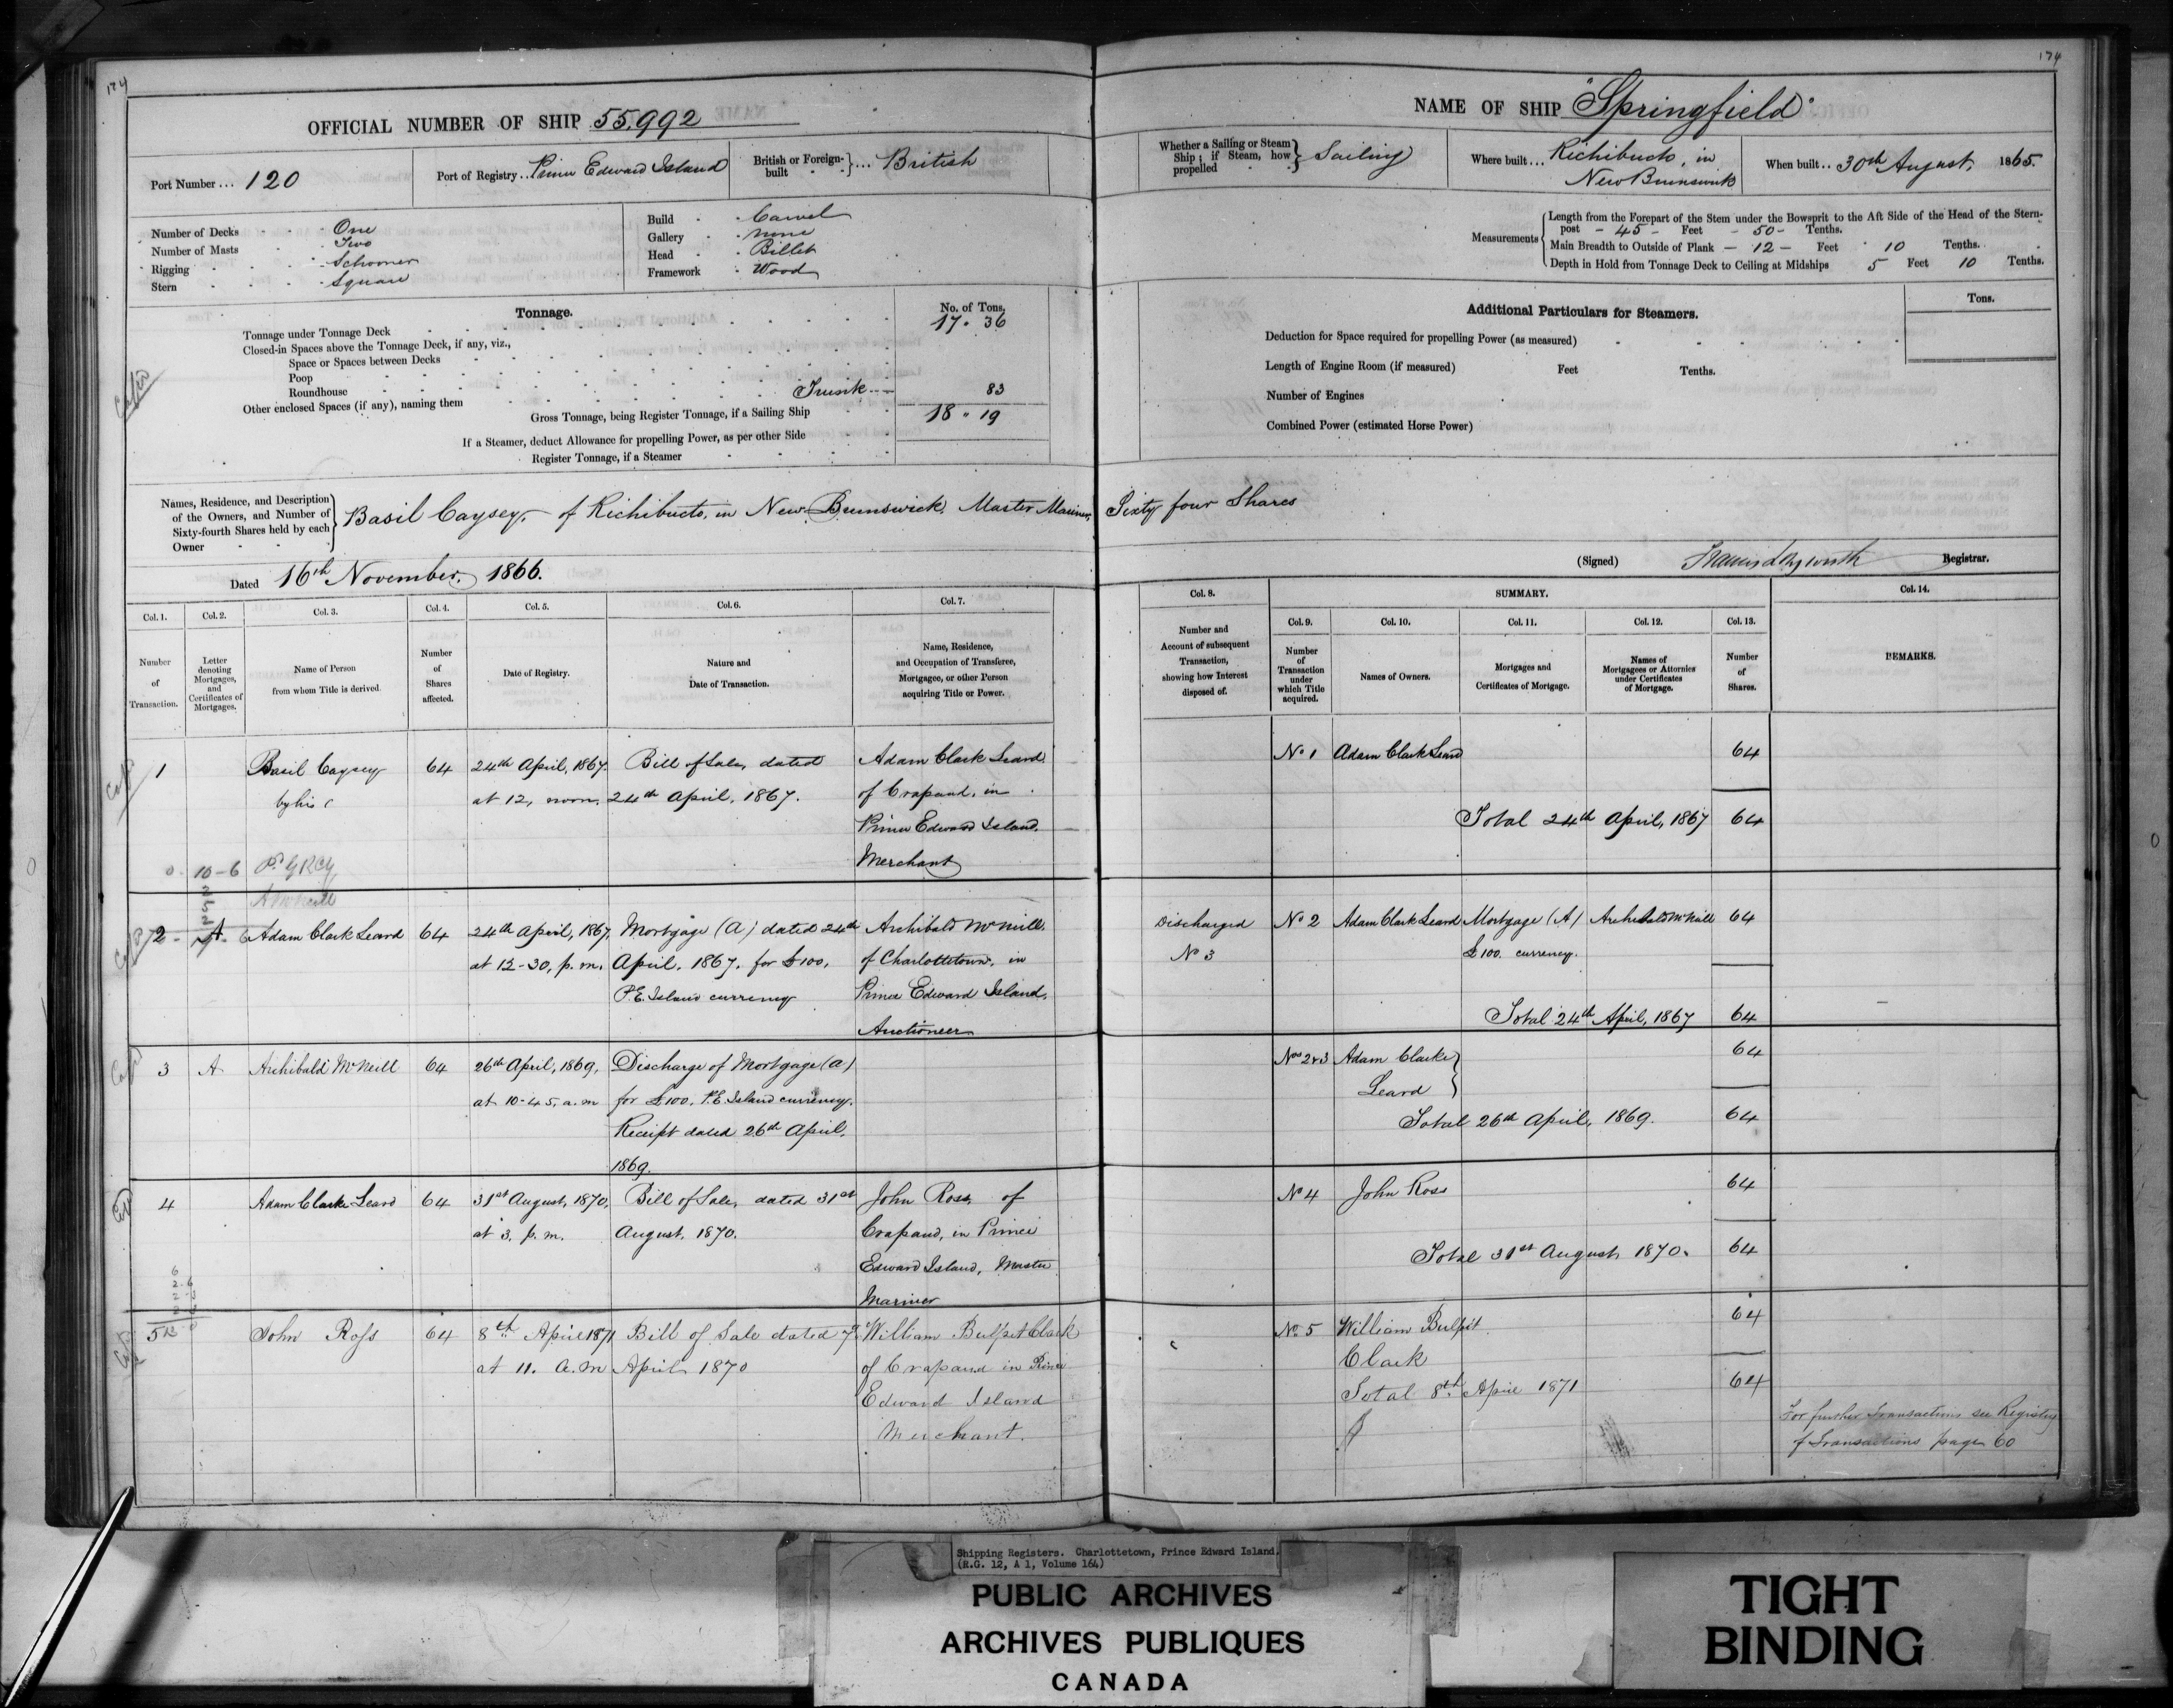 174
OFFICIAL NUMBER OF SHIP 55,992
Port Number ... 120
Port of Registry .. Prince Edward Island
British or Foreign-built } ... British
Number of Decks One
Number of Masts Two
Rigging Schooner
Stern Square
Build Carvel
Gallery none
Head Billet
Framework Wood
Tonnage.
No. of Tons.
Tonnage under Tonnage Deck 17. 36
Closed-in Spaces above the Tonnage Deck, if any, viz.,
Space or Spaces between Decks
Poop
Roundhouse
Other enclosed Spaces (if any), naming them Trunk 83
Gross Tonnage, being Register Tonnage, if a Sailing Ship 18 " 19
If a Steamer, deduct Allowance for propelling Power, as per other Side
Register Tonnage, if a Steamer
Names, Residence, and Description
of the Owners, and Number of
Sixty-fourth Shares held by each
Owner
Basil Caysey, of Richibucto, in New Brunswick. Master Mariner,
Dated 16th November, 1866.
Col. 1. Col. 2. Col. 3. Col. 4. Col. 5. Col. 6. Col. 7.
Number of Transaction.
Letter denoting Mortgages, and Certificates of Mortgages.
Name of Person from whom Title is derived.
Number of Shares affected.
Date of Registry.
Nature and Date of Transaction.
Name, Residence, and Occupation of Transferee, Mortgagee, or other Person acquiring Title or Power.
1 Basil Caysey 64 24th April, 1867. Bill of Sale, dated Adam Clark Leard
by his at 12, noon. 24th April, 1867. of Crapaud, in
Prince Edward Island.
10-6 Merchant
2 A Adam Clark Leard 64 24th April, 1867, Mortgage (A) dated 24th Archibald McNeill
at 12-30, p.m. April. 1867. for £100, of Charlottetown, in
P.E. Island currency Prince Edward Island,
Auctioneer
3 A Archibald McNeill 64 26th April, 1869, Discharge of Mortgage (A)
at 10-45, a.m for £100. P.E. Island currency.
Receipt dated 26th April,
1869.
4 Adam Clarke Leard 64 31st August, 1870, Bill of Sale, dated 31st John Ross, of
at 3. p.m. August, 1870. Crapaud, in Prince
Edward Island, Master
Mariner
5 John Ross 64 8th April 1871 Bill of Sale dated 7th William Bulpit Clark
at 11. a.m April 1870 of Crapaud in Prince
Edward Island
Merchant.
174
NAME OF SHIP "Springfield"
Whether a Sailing or Steam Ship; if Steam, how propelled } Sailing
Where built ... Richibucto, in
New Brunswick
When built .. 30th August, 1865.
Measurements
Length from the Forepart of the Stem under the Bowsprit to the Aft Side of the Head of the Stern-
post - 45 - Feet - 50 - Tenths.
Main Breadth to Outside of Plank - 12 - Feet 10 Tenths.
Depth in Hold from Tonnage Deck to Ceiling at Midships 5 Feet 10 Tenths.
Additional Particulars for Steamers.
Tons.
Deduction for Space required for propelling Power (as measured)
Length of Engine Room (if measured) Feet Tenths.
Number of Engines
Combined Power (estimated Horse Power)
Sixty four Shares
(Signed) Registrar.
Col. 8. SUMMARY. Col. 14.
Col. 9. Col. 10. Col. 11. Col. 12. Col. 13.
Number and Account of subsequent Transaction, showing how Interest disposed of.
Number of Transaction under which Title acquired.
Names of Owners.
Mortgages and Certificates of Mortgage.
Names of Mortgagees or Attornies under Certificates of Mortgage.
Number of Shares.
REMARKS.
No 1 Adam Clark Leard 64
Total 24th April, 1867 64
Discharged No 2 Adam Clark Leard Mortgage (A) Archibald McNeill 64
No 3 £100. currency.
Total 24th April, 1867 64
Nos 2&3 Adam Clarke 64
Leard
Total 26th April, 1869. 64
No 4 John Ross 64
Total 31st August 1870. 64
No. 5 William Bulpit 64
Clark
Total 8th April 1871 64
For further Transactions see Registry
of Transactions page 60
Shipping Registers. Charlottetown, Prince Edward Island.
(R.G. 12, A 1, Volume 164)
PUBLIC ARCHIVES
ARCHIVES PUBLIQUES
CANADA
TIGHT
BINDING